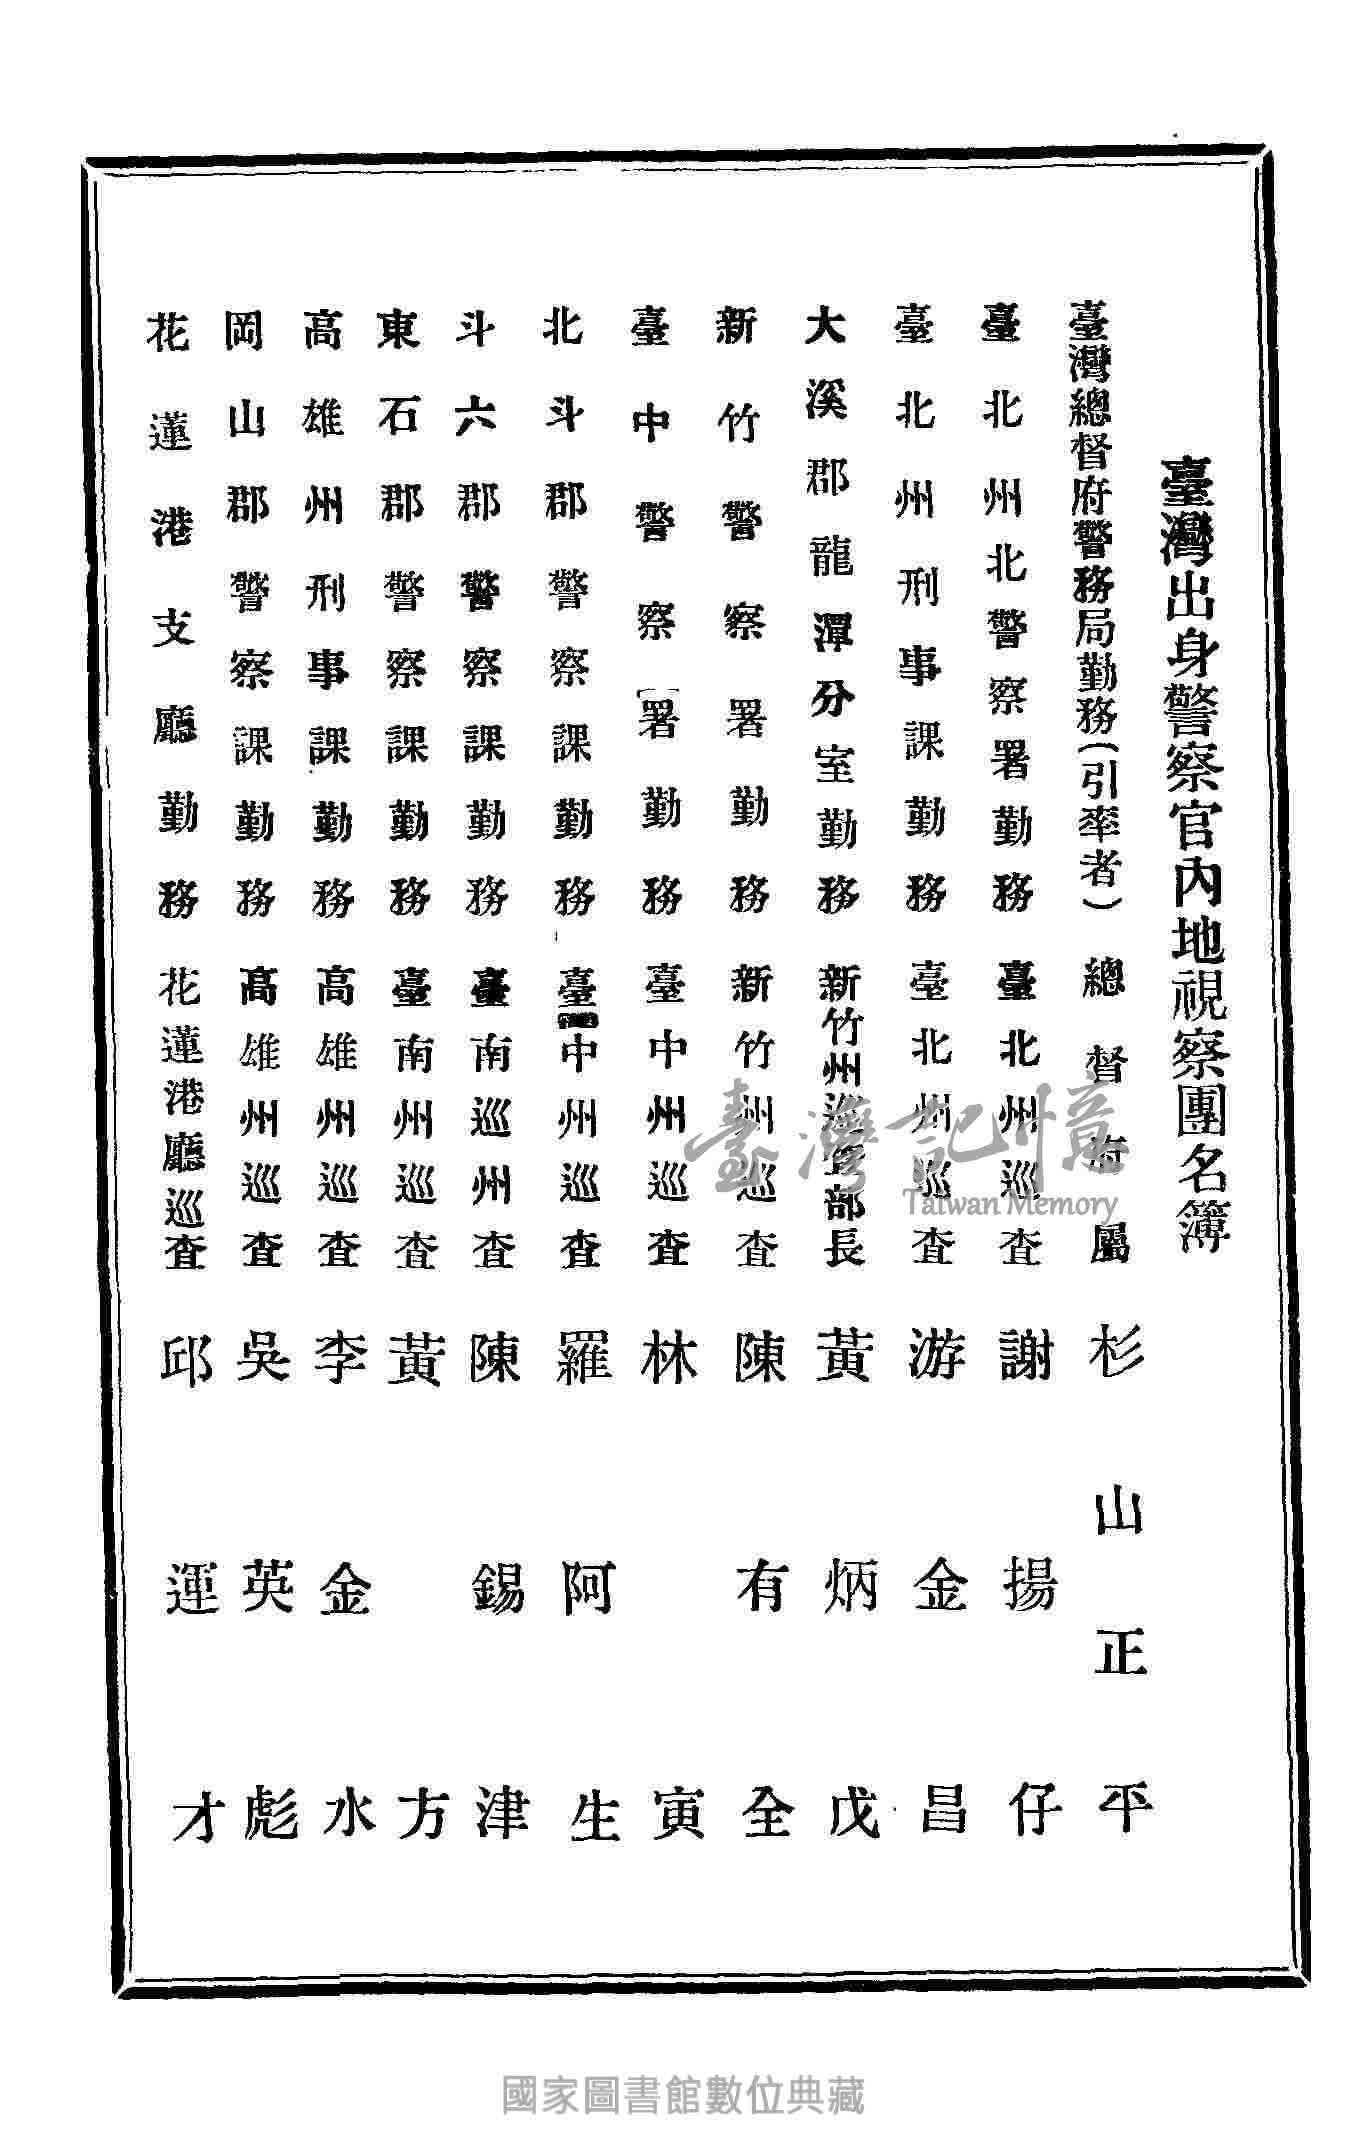 臺灣出身警察官內地視察團名簿
臺灣總督府警務局勤務(引率者) 總督府屬 杉山正平
臺北州北警察署勤務 臺北州巡查 謝揚仔
臺北州刑事課勤務 臺北州巡查 游金昌
大溪郡龍潭分室勤務 新竹州巡查部長 黃炳戊
新竹警察署勤務 新竹州巡查 陳有全
臺中警察署勤務 臺中州巡查 林寅
北斗郡警察課勤務 臺中州巡查 羅阿生
斗六郡警察課勤務 臺南巡州查 陳錫津
東石郡警察課勤務 臺南州巡查 黃方
高雄州刑事課勤務 高雄州巡查 李金水
岡山郡警察課勤務 高雄州巡查 吳英彪
花蓮港支廳勤務 花蓮港廳巡查 邱運才
臺灣記憶
Taiwan Memory
國家圖書館數位典藏